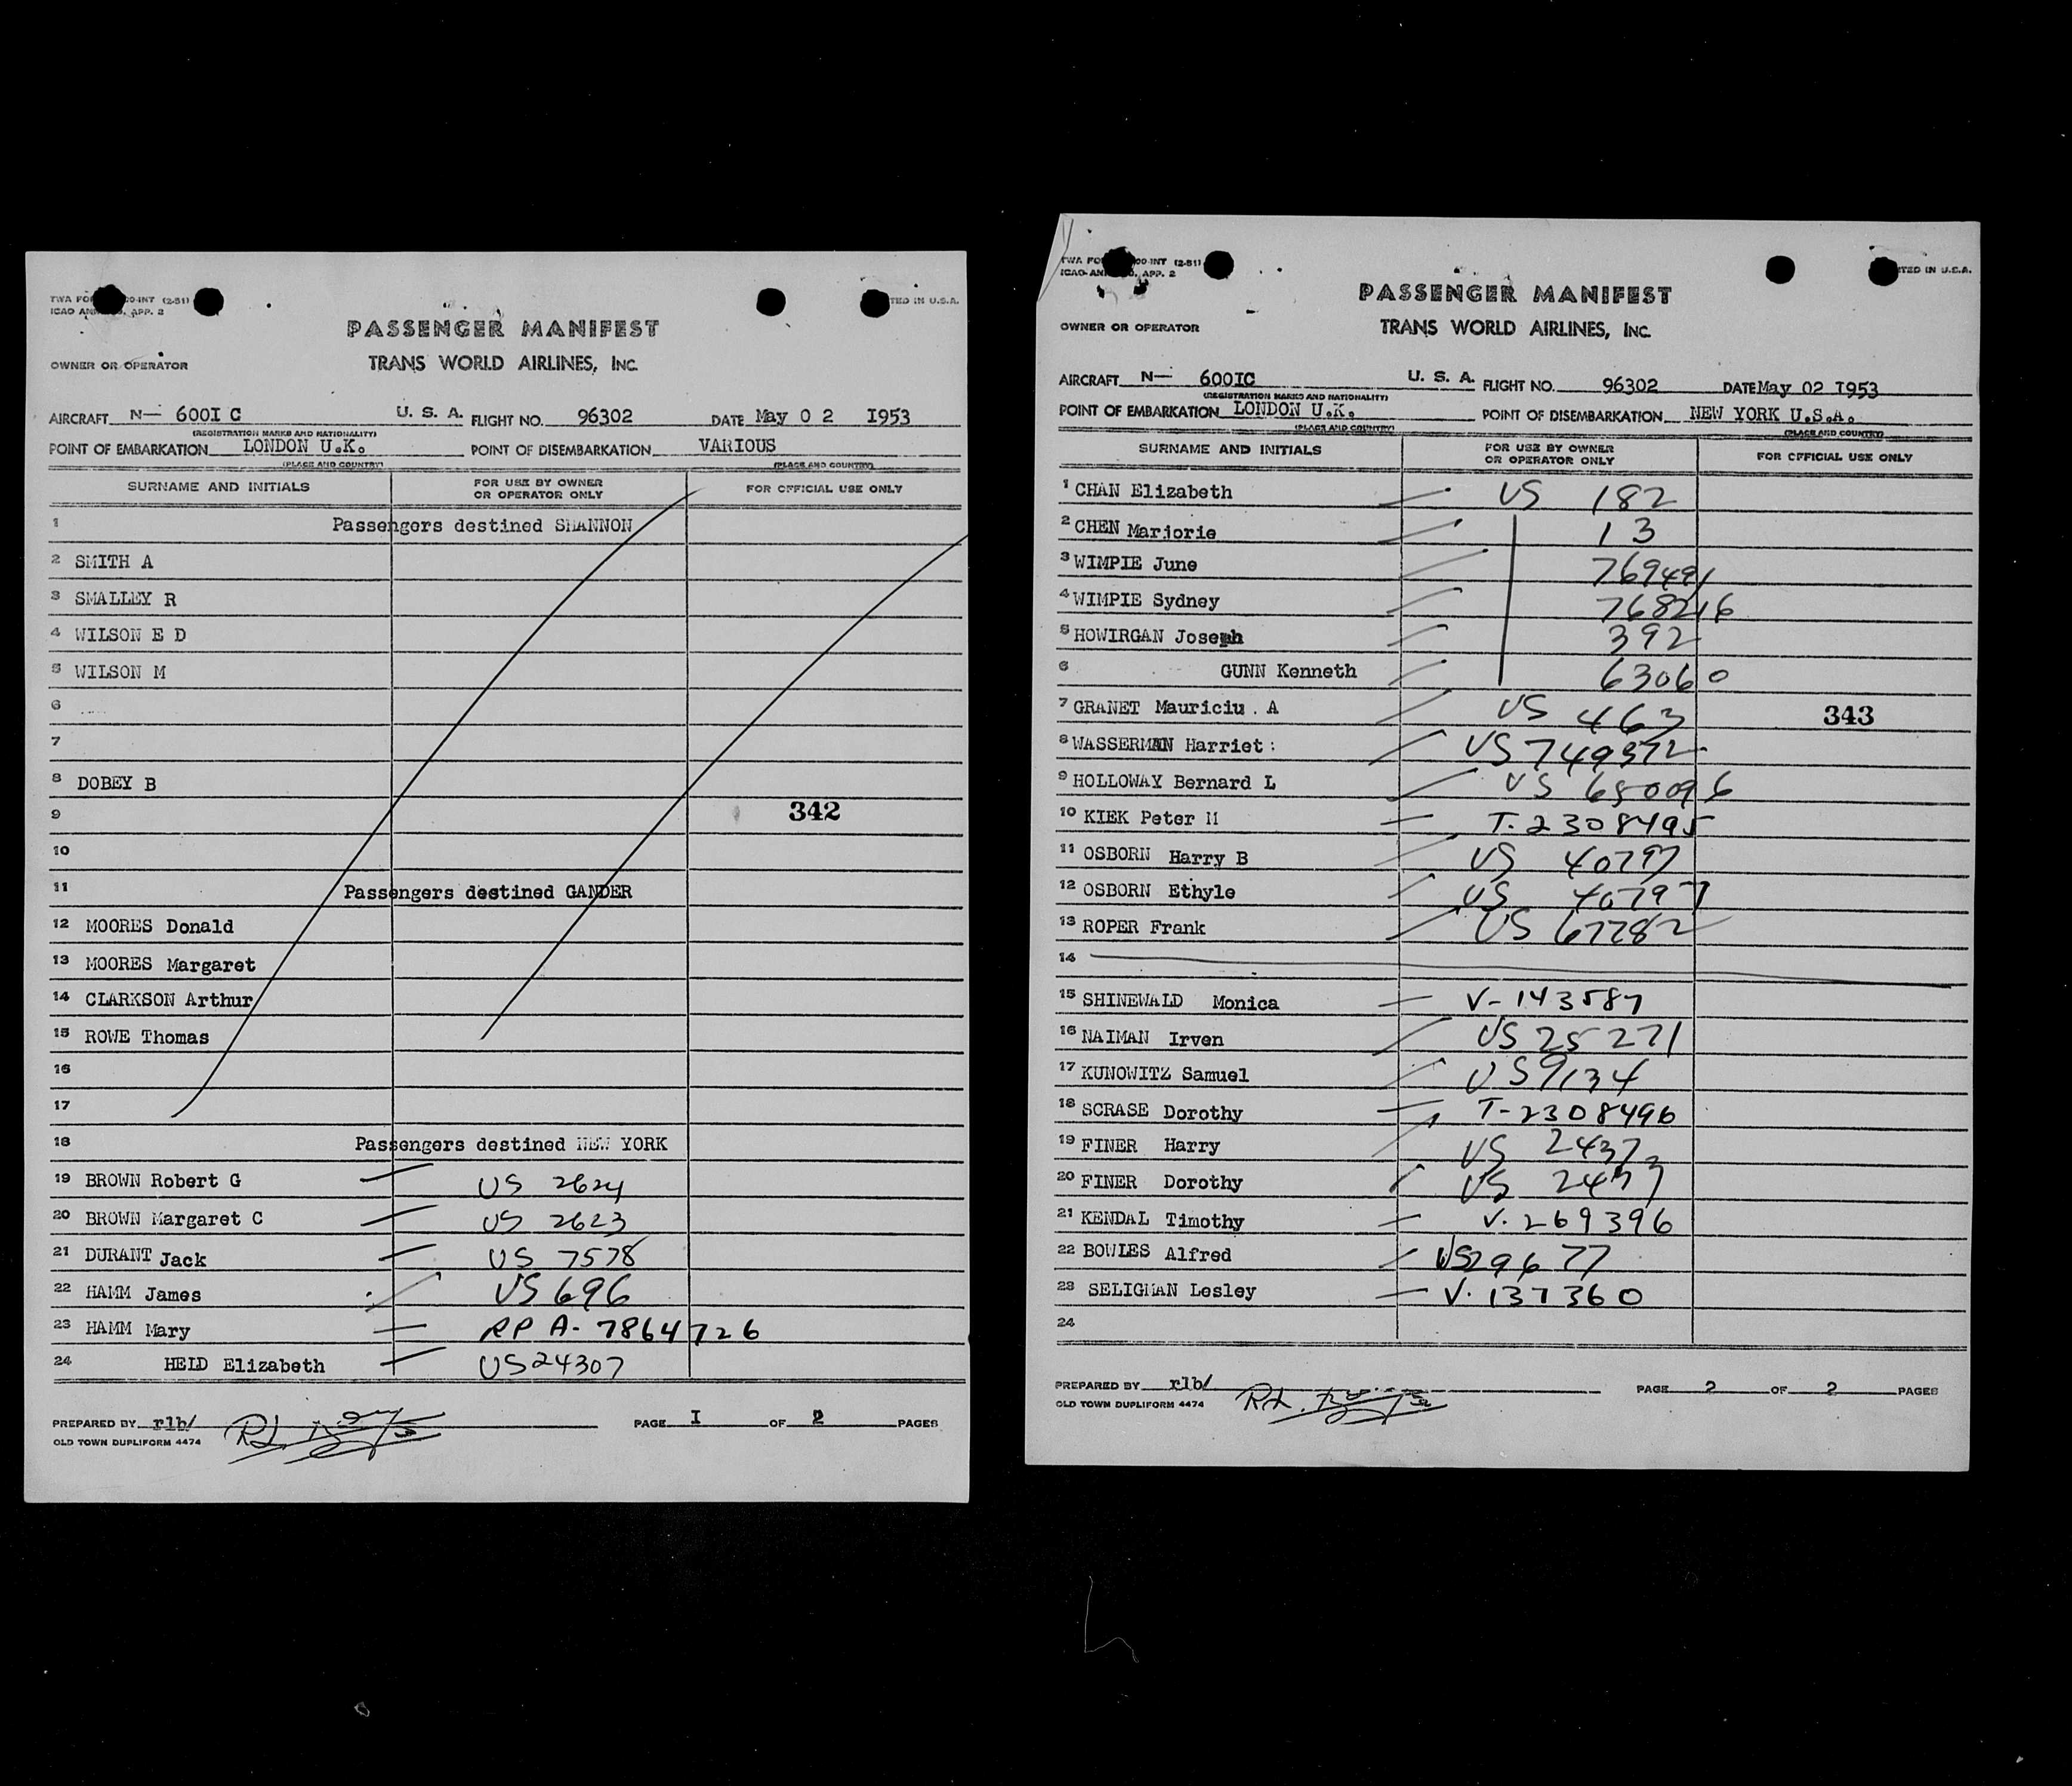 TWA FO INT (2-51) TED IN U.S.A.
ICAO AN APP. 2
PASSENGER MANIFEST
OWNER OR OPERATOR TRANS WORLD AIRLINES, INC.
AIRCRAFT N— 600I C U. S. A. FLIGHT NO. 96302 DATE May 0 2 I953
(REGISTRATION MARKS AND NATIONALITY)
POINT OF EMBARKATION LONDON U.K. POINT OF DISEMBARKATION VARIOUS
(PLACE AND COUNTRY) (PLACE AND COUNTRY)
SURNAME AND INITIALS FOR USE BY OWNER OR OPERATOR ONLY FOR OFFICIAL USE ONLY
1 Passengers destined SHANNON
2 SMITH A
3 SMALLEY R
4 WILSON E D
5 WILSON M
6
7
8 DOBEY B
9 342
10
11 Passengers destined GANDER
12 MOORES Donald
13 MOORES Margaret
14 CLARKSON Arthur
15 ROWE Thomas
16
17
18 Passengers destined NEW YORK
19 BROWN Robert G US 2624
20 BROWN Margaret C US 2623
21 DURANT Jack US 7578
22 HAMM James US 696
23 HAMM Mary RP A- 7864726
24 HELD Elizabeth US 24307
PREPARED BY rlb/ PAGE I OF 2 PAGES
OLD TOWN DUPLIFORM 4474
TWA FO 00-INT (2-51) TED IN U.S.A.
ICAO AN APP. 2
PASSENGER MANIFEST
OWNER OR OPERATOR TRANS WORLD AIRLINES, INC.
AIRCRAFT N— 600IC U. S. A. FLIGHT NO. 96302 DATE May 02 I953
(REGISTRATION MARKS AND NATIONALITY)
POINT OF EMBARKATION LONDON U.K. POINT OF DISEMBARKATION NEW YORK U.S.A.
(PLACE AND COUNTRY) (PLACE AND COUNTRY)
SURNAME AND INITIALS FOR USE BY OWNER OR OPERATOR ONLY FOR OFFICIAL USE ONLY
1 CHAN Elizabeth US 182
2 CHEN Marjorie 13
3 WIMPIE June 769491
4 WIMPIE Sydney 768216
5 HOWIRGAN Joseph 392
6 GUNN Kenneth 63060
7 GRANET Mauriciu . A US 463 343
8 WASSERMAN Harriet : US 749372
9 HOLLOWAY Bernard L US 650096
10 KIEK Peter M T. 2308495
11 OSBORN Harry B US 40797
12 OSBORN Ethyle US 40797
13 ROPER Frank US 67282
14
15 SHINEWALD Monica V- 143587
16 NAIMAN Irven US 25271
17 KUNOWITZ Samuel US 9134
18 SCRASE Dorothy T- 2308496
19 FINER Harry US 2437
20 FINER Dorothy US 2437
21 KENDAL Timothy V. 269396
22 BOWLES Alfred US 29677
23 SELIGMAN Lesley V. 137360
24
PREPARED BY rlb/ PAGE 2 OF 2 PAGES
OLD TOWN DUPLIFORM 4474